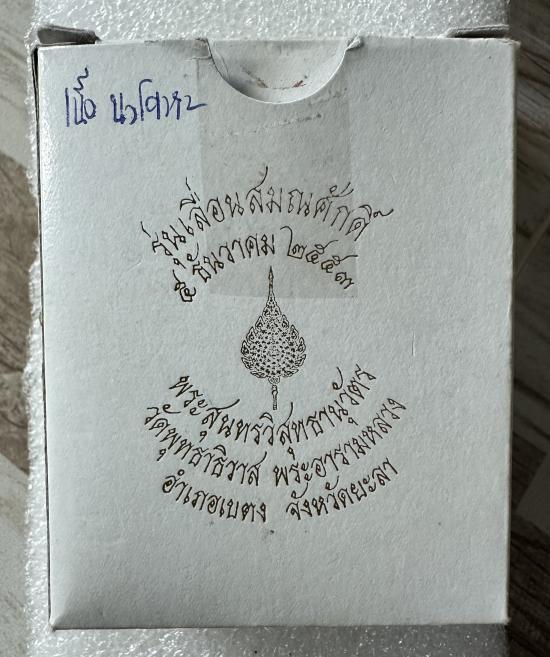 เนื้อ นวโลหะ
รุ่นเลื่อนสมณศักดิ์
๕ ธันวาคม ๒๕๕๓
พระสุนทรวิสุทธานุวัตร
วัดพุทธาธิวาส พระอารามหลวง
อำเภอเบตง จังหวัดยะลา